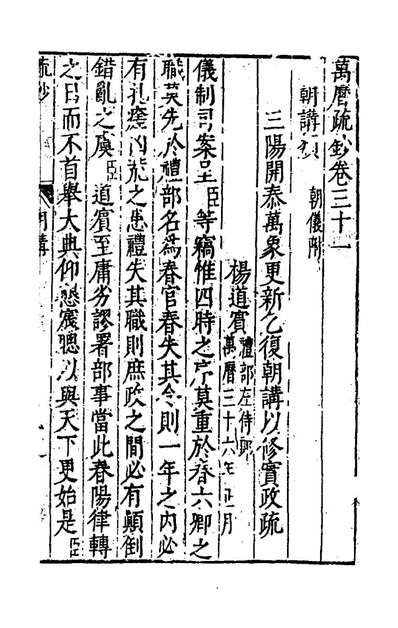 萬曆疏鈔卷三十一
朝講類 朝儀附
三陽開泰萬象更新乞復朝講以修實政疏
楊道賓 禮部左侍郎 萬曆三十六年正月
儀制司案呈臣等竊惟四時之序莫重於春六卿之
職莫先於禮部名為春官春失其令則一年之內必
有札瘥凶荒之患禮失其職則庶政之間必有顛倒
錯亂之虞臣道賓至庸劣謬署部事當此春陽律轉
之日而不首舉大典仰懇宸聰以與天下更始是臣
疏鈔
朝講